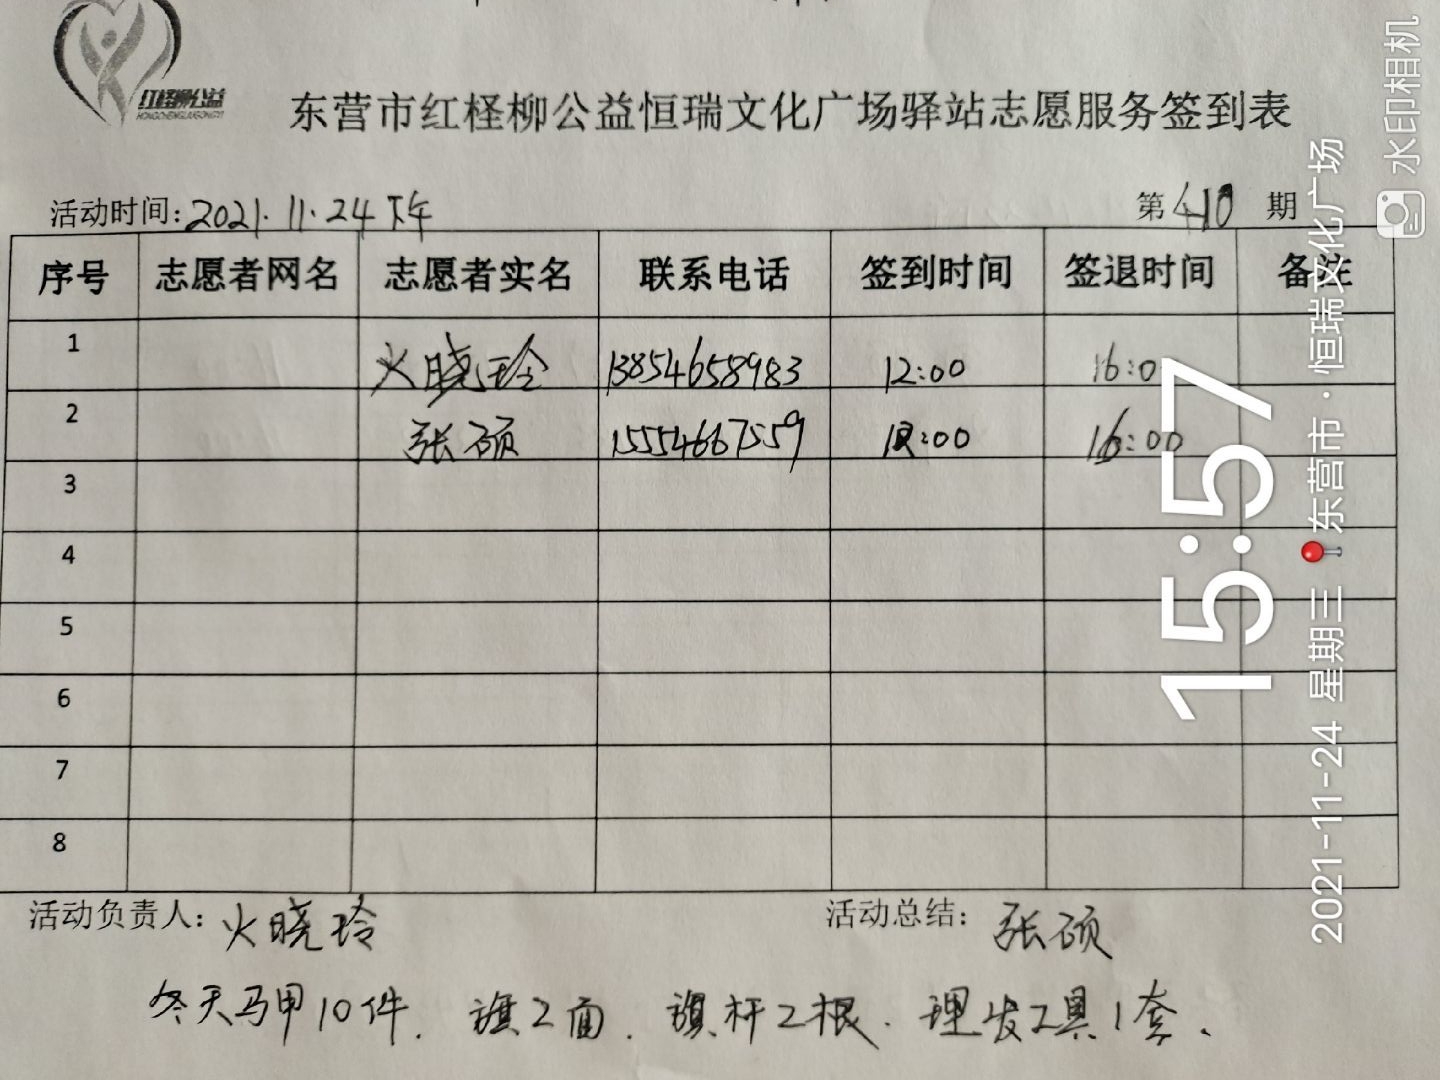 红柽柳公益
HONGCHENGLIUGONGYI
东营市红柽柳公益恒瑞文化广场驿站志愿服务签到表
活动时间:2021.11.24下午 第410期
序号 志愿者网名 志愿者实名 联系电话 签到时间 签退时间 备注
1 火晓玲 13854658983 12:00 16:0
2 张硕 15554667559 12:00 16:00
3
4
5
6
7
8
活动负责人:火晓玲 活动总结:张硕
冬天马甲10件.旗2面.旗杆2根.理发工具1套.
15:57
2021-11-24 星期三 东营市·恒瑞文化广场
水印相机